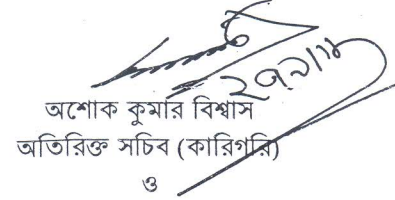 অশোক কুমার বিশ্বাস
অতিরিক্ত সচিব (কারিগরি)
ও